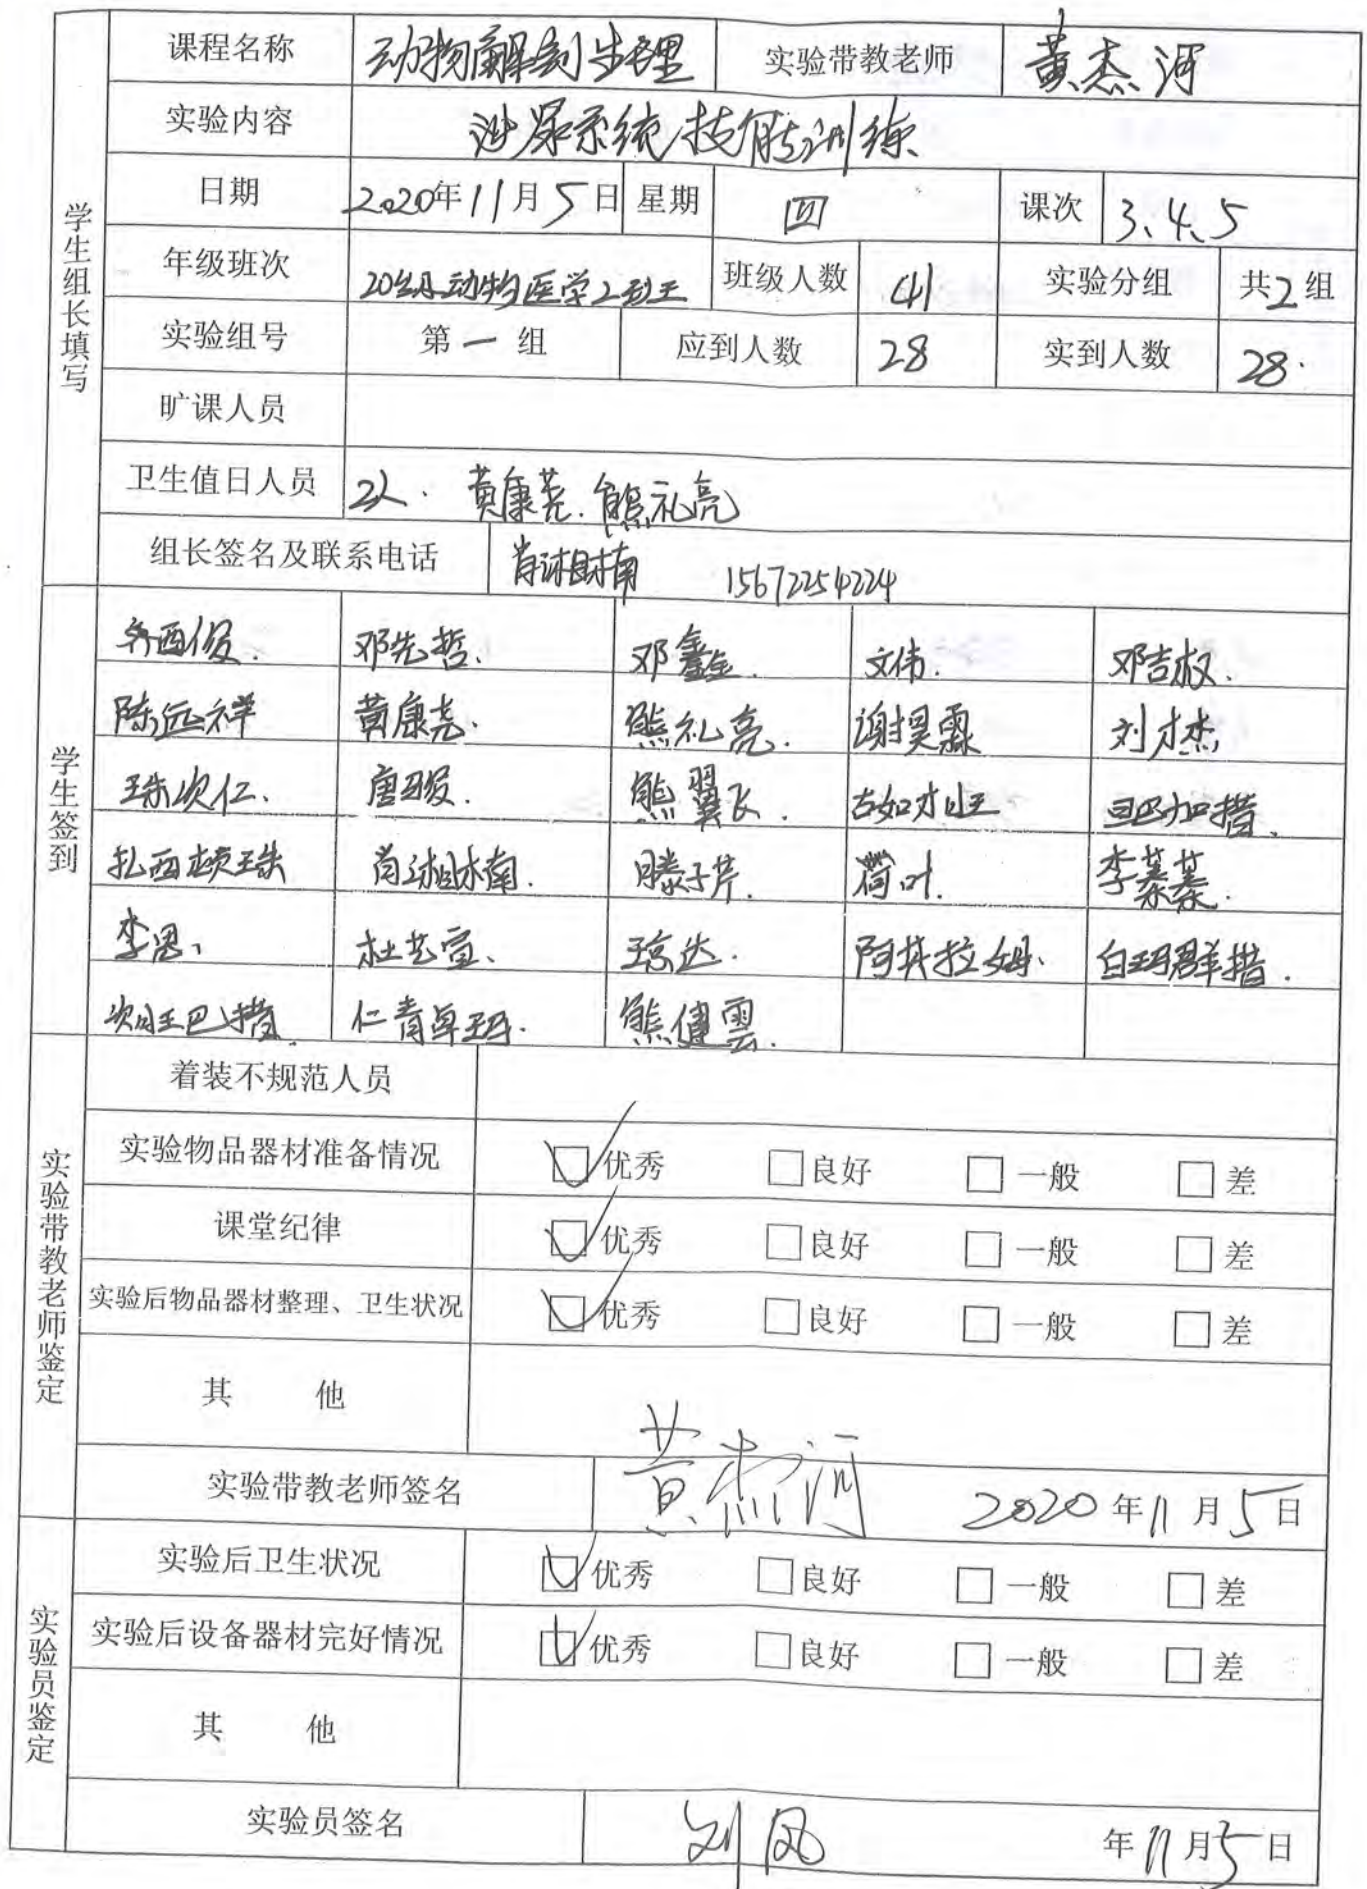 课程名称 动物解剖生理 实验带教老师 黄杰河
实验内容 泌尿系统技能训练
日期 2020年11月5日 星期 四 课次 3、4、5
年级班次 动物医学2班 班级人数 41 实验分组 共2组
实验组号 第一组 应到人数 28 实到人数 28.
旷课人员
卫生值日人员 2人. 黄康尧. 熊礼亮
组长签名及联系电话 肖湘楠 15672254224
学生组长填写
齐西俊. 邓先哲、 邓鑫. 文伟. 邓吉权.
陈远祥 黄康尧. 熊礼亮. 谢昊霖 刘才杰
珠次仁、 唐骏. 熊翼飞. 古如才旺 旦巴加措.
扎西顿珠 肖湘楠. 滕子芹. 荷叶. 李蓁蓁.
李思、 杜艺宣、 琼达. 阿其拉姆. 白玛群措.
次旺巴措. 仁青卓玛. 熊健雲.
学生签到
着装不规范人员
实验物品器材准备情况 ☑优秀 □良好 □一般 □差
课堂纪律 ☑优秀 □良好 □一般 □差
实验后物品器材整理、卫生状况 ☑优秀 □良好 □一般 □差
其 他
实验带教老师签名 黄杰河 2020年11月5日
实验带教老师鉴定
实验后卫生状况 ☑优秀 □良好 □一般 □差
实验后设备器材完好情况 ☑优秀 □良好 □一般 □差
其 他
实验员签名 刘凤 年11月5日
实验员鉴定